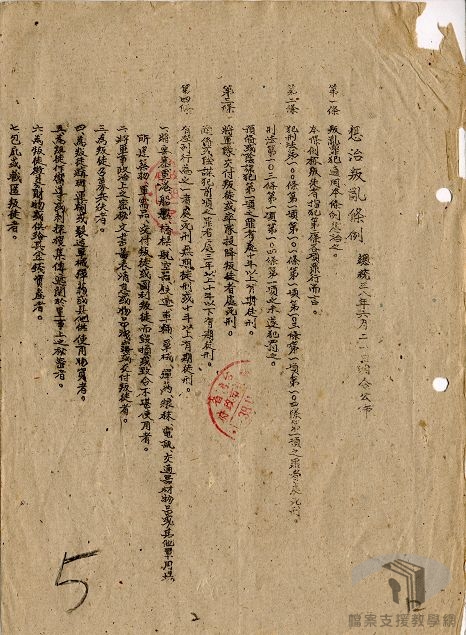 懲治叛亂條例　總統三八年六月二一日令公布
第一條　叛亂罪犯適用本條例懲治之。
本條例稱叛徒者指犯第二條各項罪行而言。
第二條　犯刑法第一〇〇條第一項第一〇一條第一項第一〇三條第一項第一〇四條第一項之罪者處死刑。
刑法第一〇三條第一項第一〇四條第一項之未遂犯罰之。
預備或陰謀犯第一項之罪者處十年以上有期徒刑。
第三條　將軍隊交付叛徒或率隊投降叛徒者處死刑。
預備或陰謀犯前項之罪者處三年以上十年以下有期徒刑。
第四條　有左列行為之一者處死刑無期徒刑或十年以上有期徒刑。
一、將要塞軍港船艦橋樑航空器鐵道車輛軍械彈藥糧秣電訊交通器材物品或其他軍用場
所建築物軍需品交付叛徒或圖利叛徒而毀損或致令不堪使用者。
二、將軍事政治上之秘密文書圖表消息或物品洩漏或交付叛徒者。
三、為叛徒召募兵伕者。
四、為叛徒購辦運輸或製造軍械彈藥或其他供使用物資者。
五、為叛徒作嚮導或刺探搜集傳遞關於軍事上之秘密者。
六、為叛徒徵募財物或供給其金錢資產者。
七、包庇或藏匿叛徒者。
5
2
檔案支援教學網